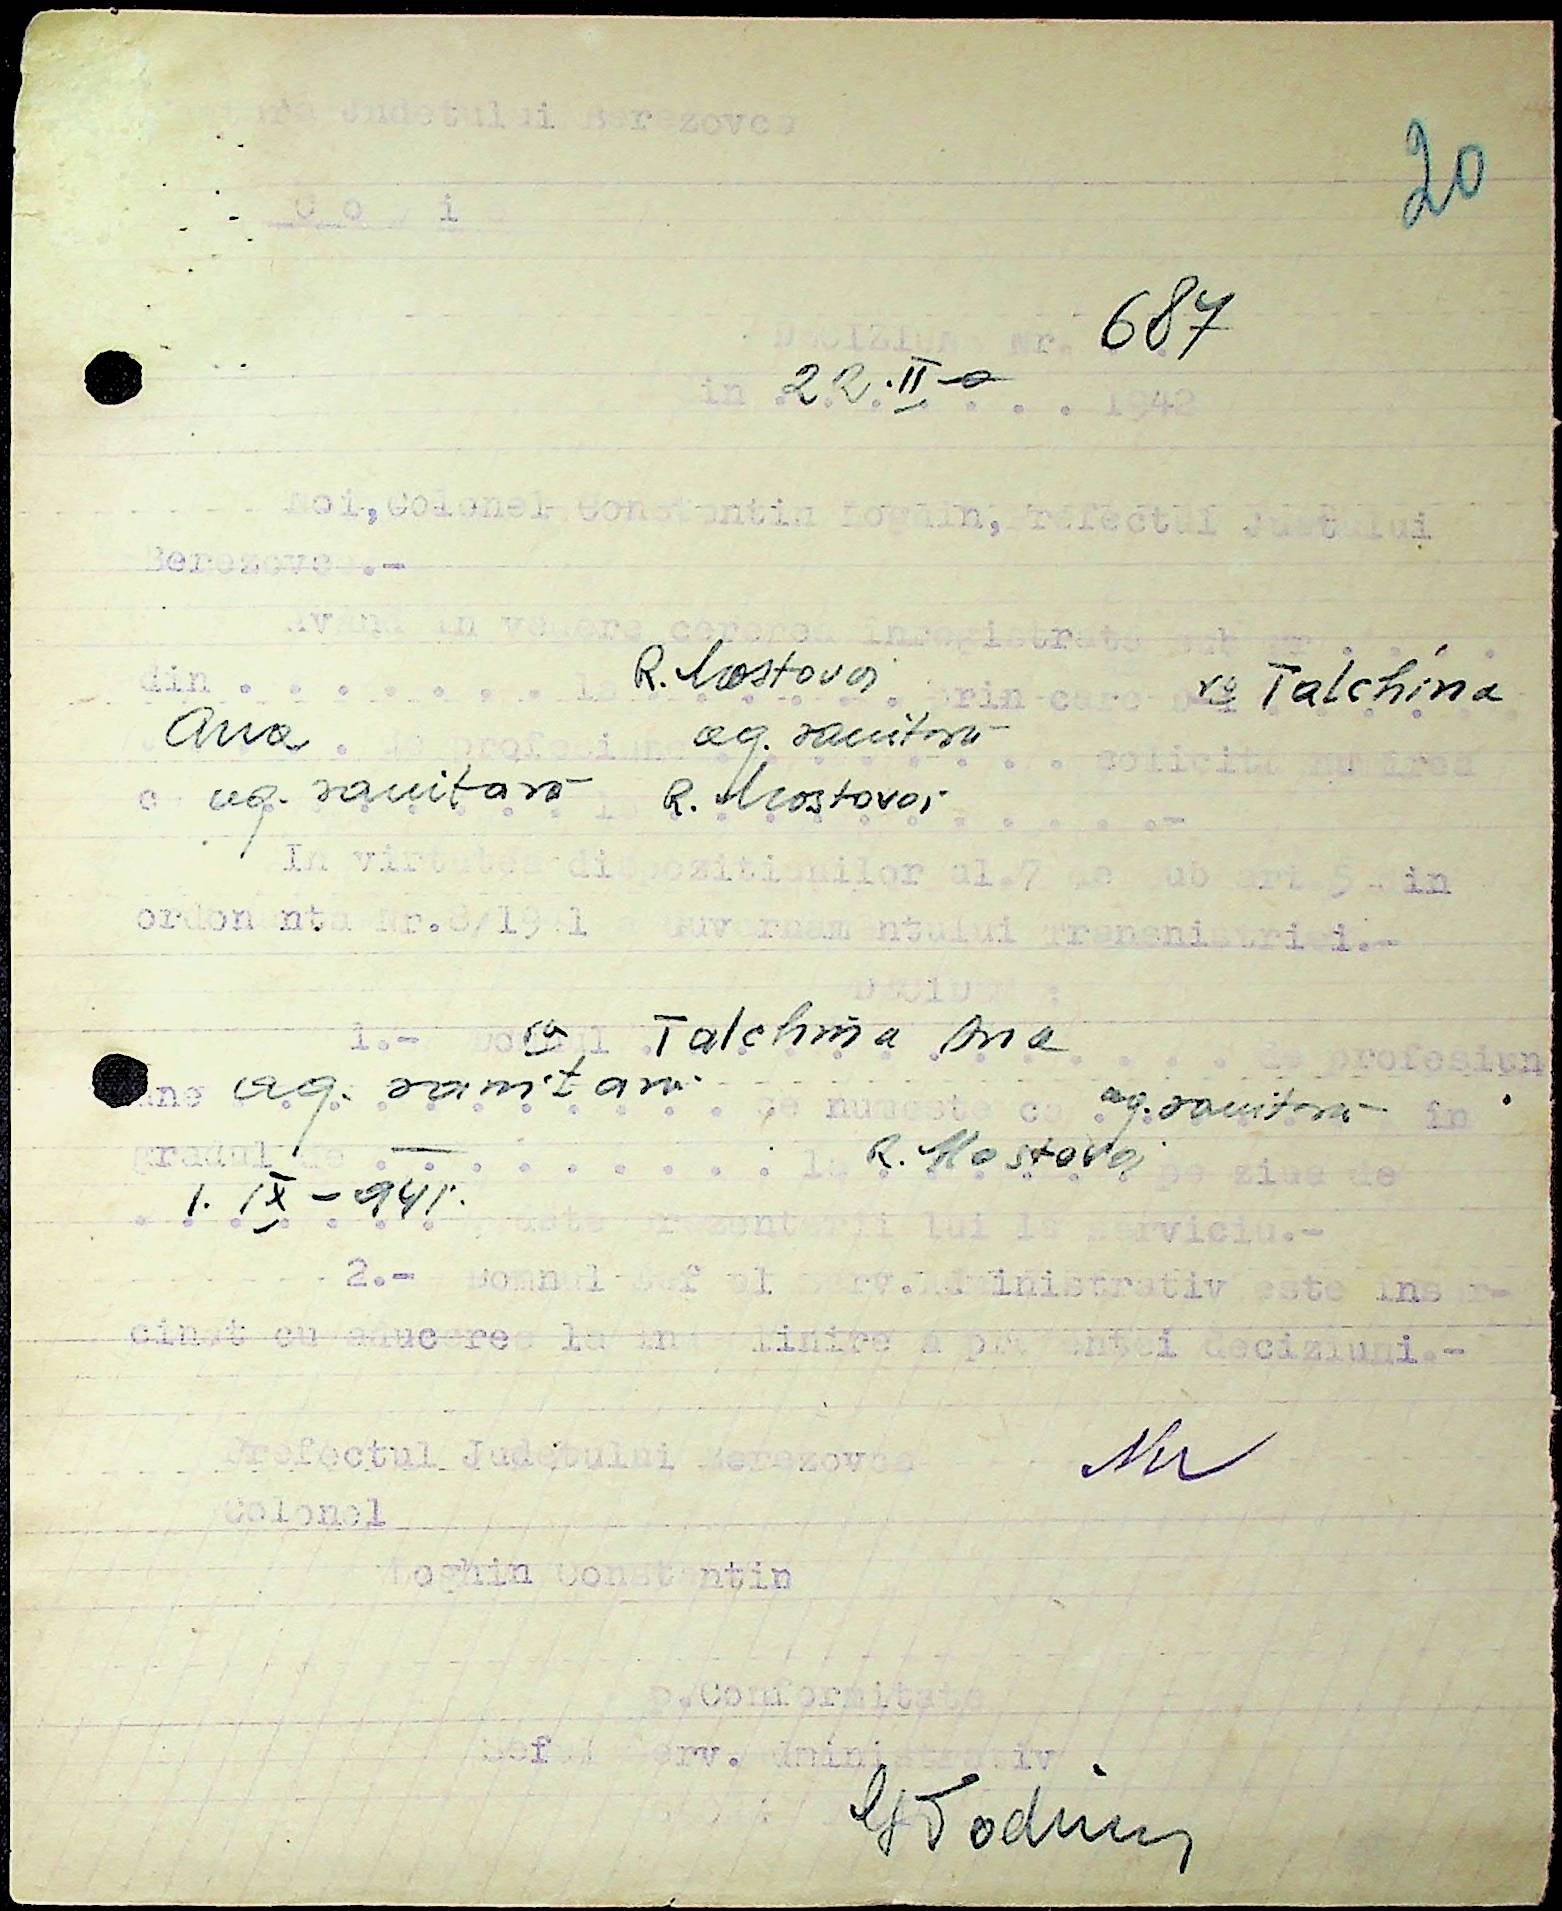 Prefectura Judetului Berezovca
20
C o p i e
Deciziune Nr. 687
din 22.II 1942
Noi, Colonel Constantin Loghin, Prefectul Judetului
Berezovca.-
Avand in vedere cererea inregistrata sub Nr . . . .
din . . . . . . . . la R. Mostovoi prin care d-l ra Talchina
Ana . de profesiune ag. sanitară solicita numirea
ca ag. sanitară la R. Mostovoi . . . .-
In virtutea dispozitiunilor al.7 de sub art.5 din
ordonanta Nr.8/1941 a Guvernamentului Transnistriei.-
DECIDEM :
1.- Domnul ra Talchina Ana . . . . de profesiun
une ag. sanitară se numeste ca ag. sanitară in
gradul de — . . . . . . . la R. Mostovoi pe ziua de
1. IX – 941. data prezentarii lui la serviciu.-
2.- Domnul Sef al Serv. Administrativ este insar-
cinat cu aducerea la indeplinire a prezentei deciziuni.-
Prefectul Judetului Berezovca
Colonel
Loghin Constantin
p.Conformitate
Seful Serv. Administrativ